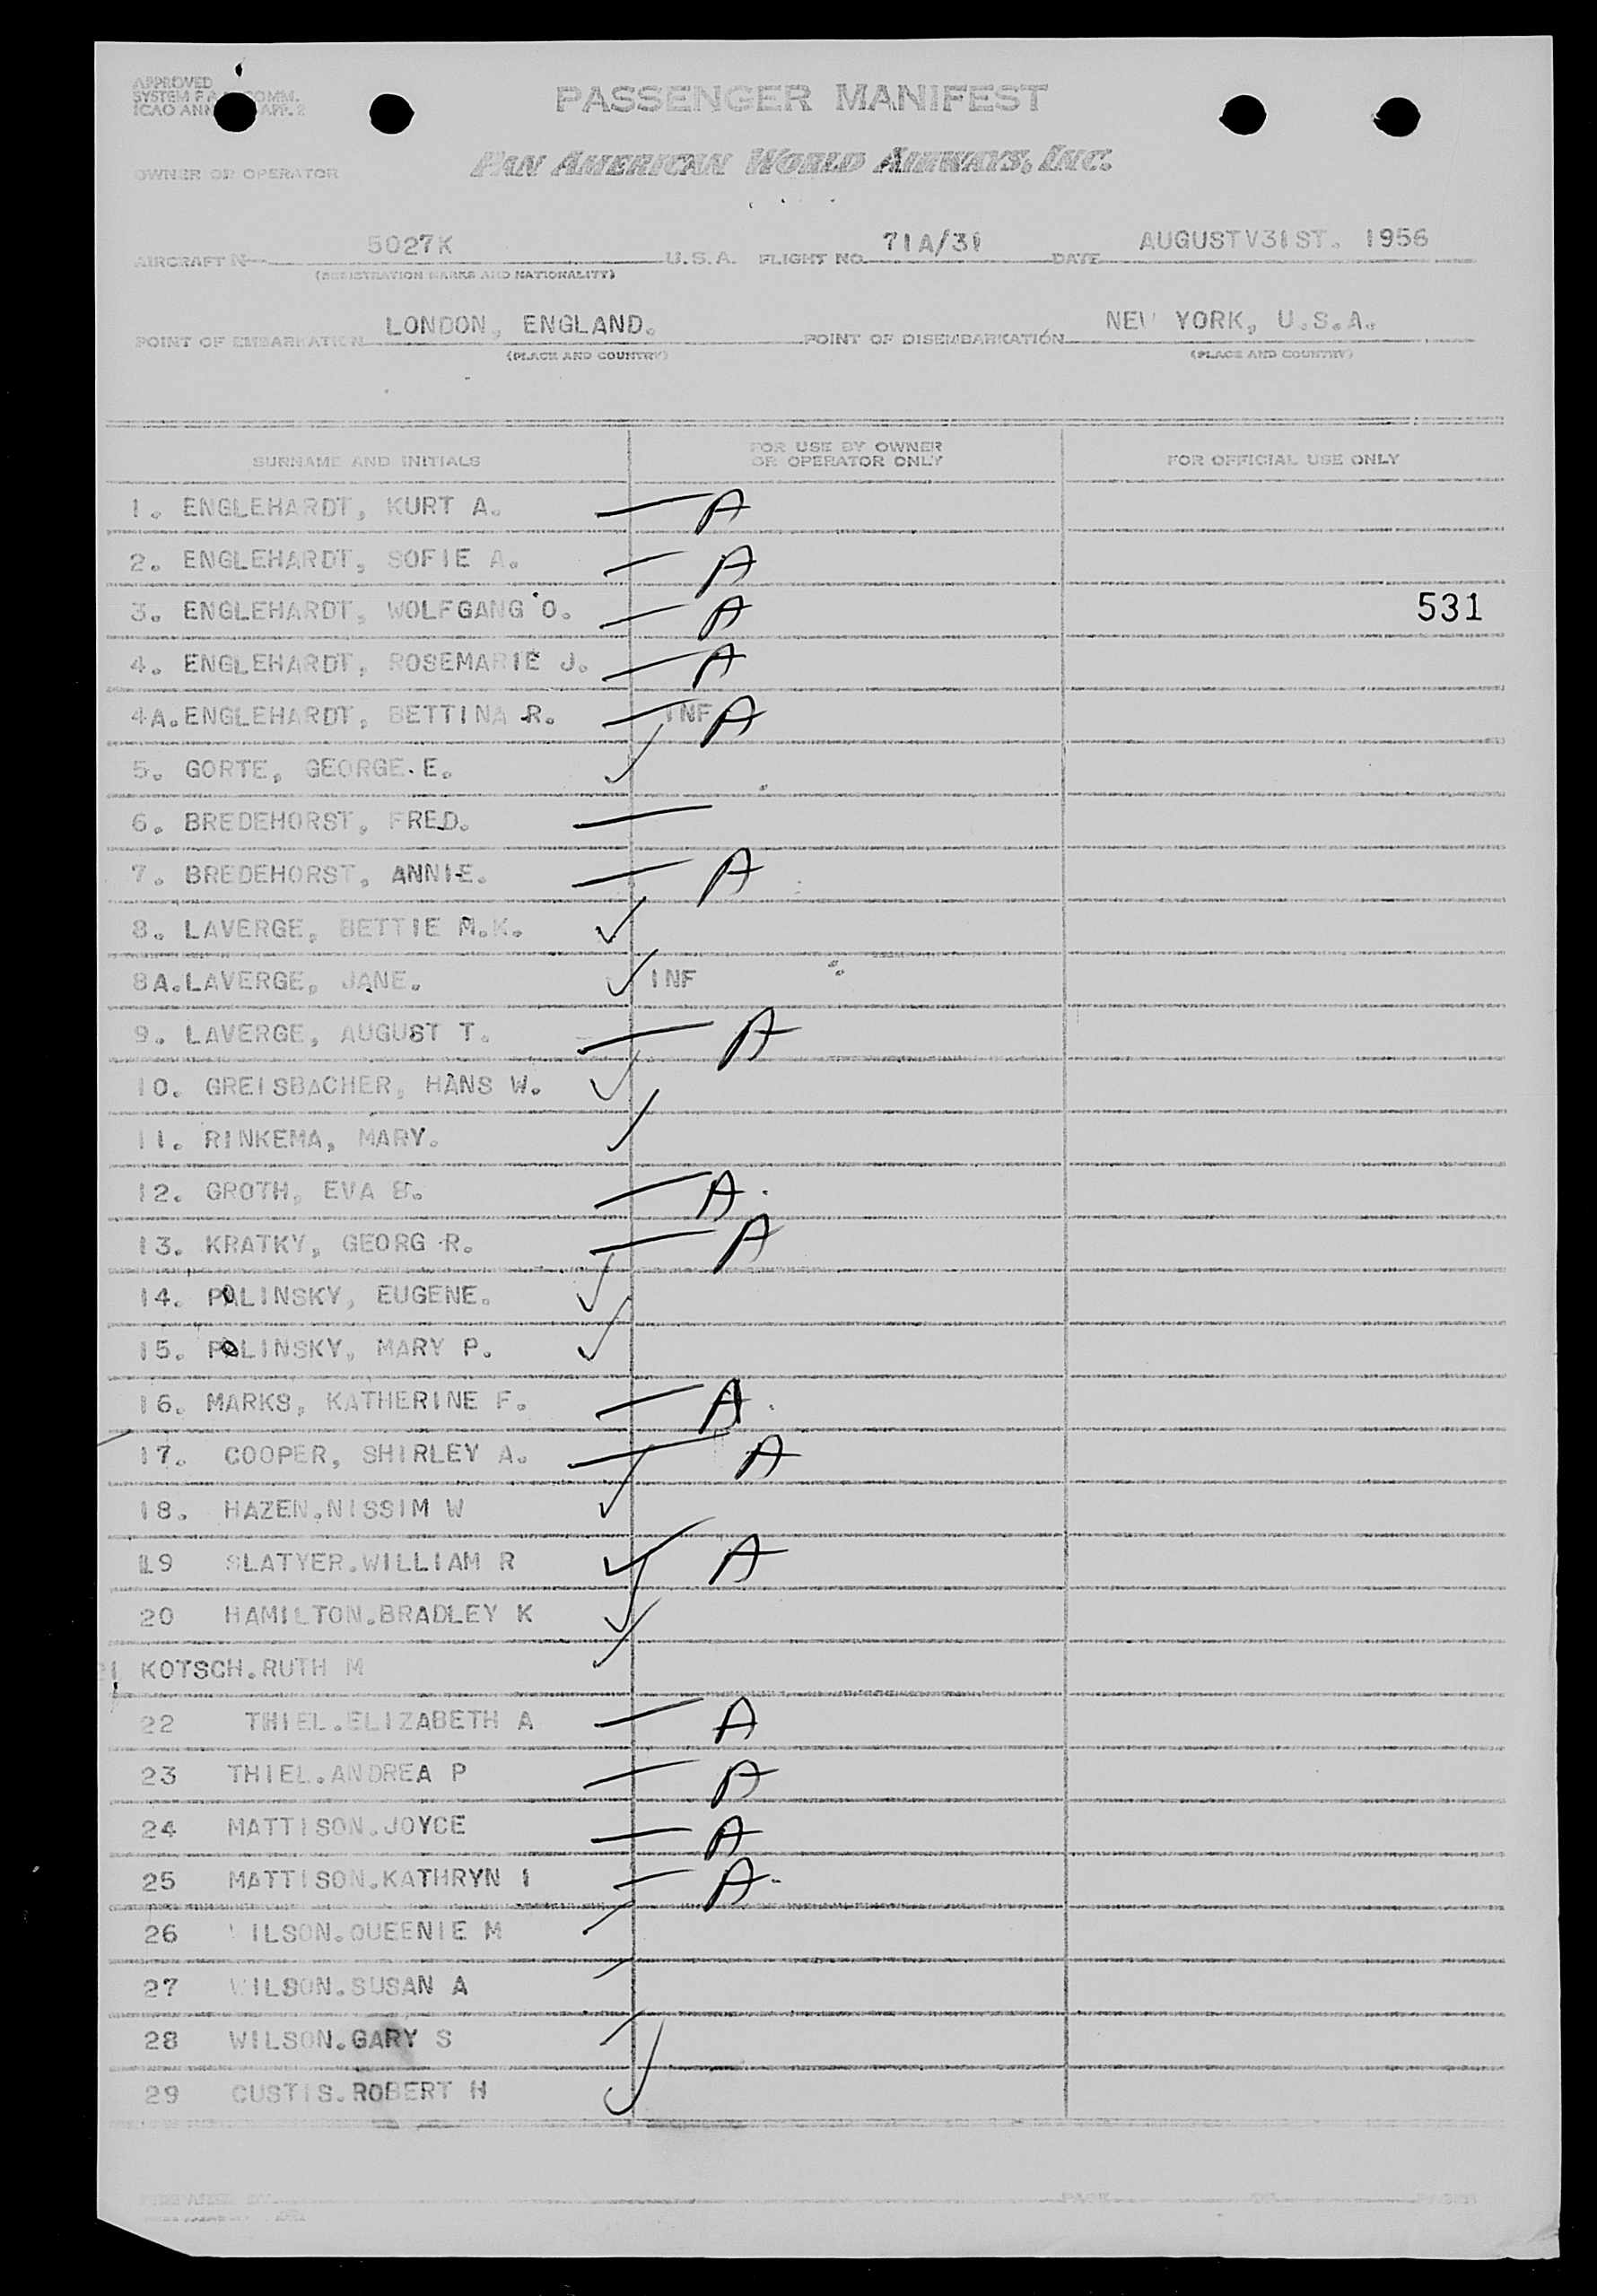 APPROVED
SYSTEM F.A.L. COMM.
ICAO ANN APP. 2
PASSENGER MANIFEST
OWNER OR OPERATOR
PAN AMERICAN WORLD AIRWAYS, INC.
AIRCRAFT N 5027K U.S.A. FLIGHT NO. 71A/31 DATE AUGUSTV31ST. 1956
(REGISTRATION MARKS AND NATIONALITY)
POINT OF EMBARKATION LONDON, ENGLAND. POINT OF DISEMBARKATION NEW YORK, U.S.A.
(PLACE AND COUNTRY) (PLACE AND COUNTRY)
SURNAME AND INITIALS FOR USE BY OWNER OR OPERATOR ONLY FOR OFFICIAL USE ONLY
1. ENGLEHARDT, KURT A. — A
2. ENGLEHARDT, SOFIE A. — A
3. ENGLEHARDT, WOLFGANG O. — A 531
4. ENGLEHARDT, ROSEMARIE J. — A
4A. ENGLEHARDT, BETTINA R. — INF A
5. GORTE, GEORGE E. ✓
6. BREDEHORST, FRED. —
7. BREDEHORST, ANNIE. — A
8. LAVERGE, BETTIE M.K. ✓
8A. LAVERGE, JANE. ✓ INF
9. LAVERGE, AUGUST T. — A
10. GREISBACHER, HANS W. ✓
11. RINKEMA, MARY. ✓
12. GROTH, EVA B. — A
13. KRATKY, GEORG R. — A
14. POLINSKY, EUGENE. ✓
15. POLINSKY, MARY P. ✓
16. MARKS, KATHERINE F. — A
17. COOPER, SHIRLEY A. — A
18. HAZEN.NISSIM W ✓
19 SLATYER.WILLIAM R ✓ A
20 HAMILTON.BRADLEY K ✓
21 KOTSCH.RUTH M ✓
22 THIEL.ELIZABETH A — A
23 THIEL.ANDREA P — A
24 MATTISON.JOYCE — A
25 MATTISON.KATHRYN I — A
26 WILSON.QUEENIE M
27 WILSON.SUSAN A
28 WILSON.GARY S
29 CUSTIS.ROBERT H ✓